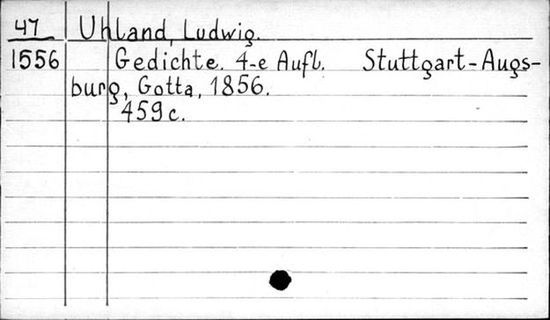 47 Uhland, Ludwig.
1556 Gedichte. 4-e Aufl. Stuttgart-Augs-
burg, Gotta, 1856.
459 c.